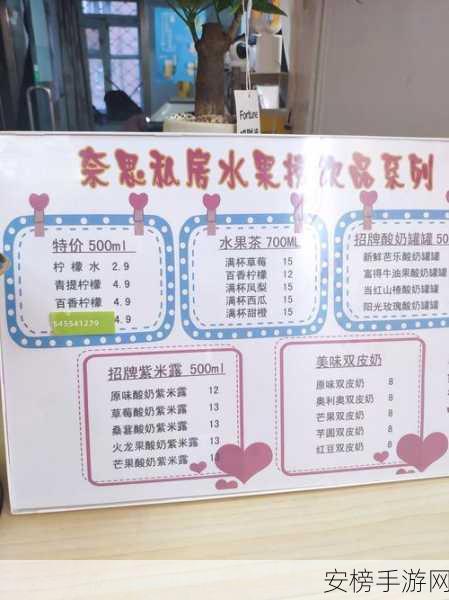 Fortune
奈思私房水果捞饮品系列
特价 500ml
柠檬水 2.9
青提柠檬 4.9
百香柠檬 4.9
545541279 4.9
水果茶 700ML
满杯草莓 15
百香柠檬 12
满杯凤梨 15
满杯西瓜 15
满杯甜橙 15
招牌酸奶罐罐 50
新鲜芭乐酸奶罐罐
富得牛油果酸奶罐罐
当红山楂酸奶罐罐
阳光玫瑰酸奶罐罐
招牌紫米露 500ml
原味酸奶紫米露 12
草莓酸奶紫米露 13
桑葚酸奶紫米露 13
火龙果酸奶紫米露 13
芒果酸奶紫米露 13
美味双皮奶
原味双皮奶 8
奥利奥双皮奶 8
芒果双皮奶 8
芋圆双皮奶 8
红豆双皮奶 8
安榜手游网